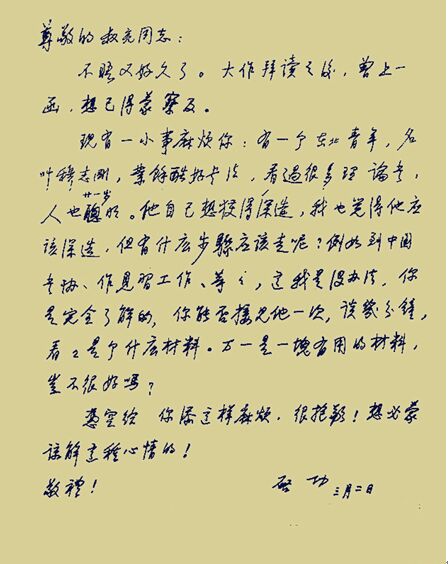 尊敬的叔亮同志：
不晤又好久了。大作拜读之后，曾上一
函，想已得蒙察及。
现有一小事麻烦你：有一个东北青年，名
叶穆志刚，业馀酷好书法，看过很多理论书，
廿一岁
人也聰明。他自己想投得深造，我也觉得他应
该深造，但有什么步骤应该走呢？例如到中国
书协、作見習工作、等々，这我是没办法，你
是完全了解的，你能否接見他一次，谈幾分鐘，
看々是个什么材料。万一是一塊有用的材料，
岂不很好吗？
憑空给 你添这样麻烦，很抱歉！想必蒙
谅解这种心情的！
敬禮！
启功 三月二日